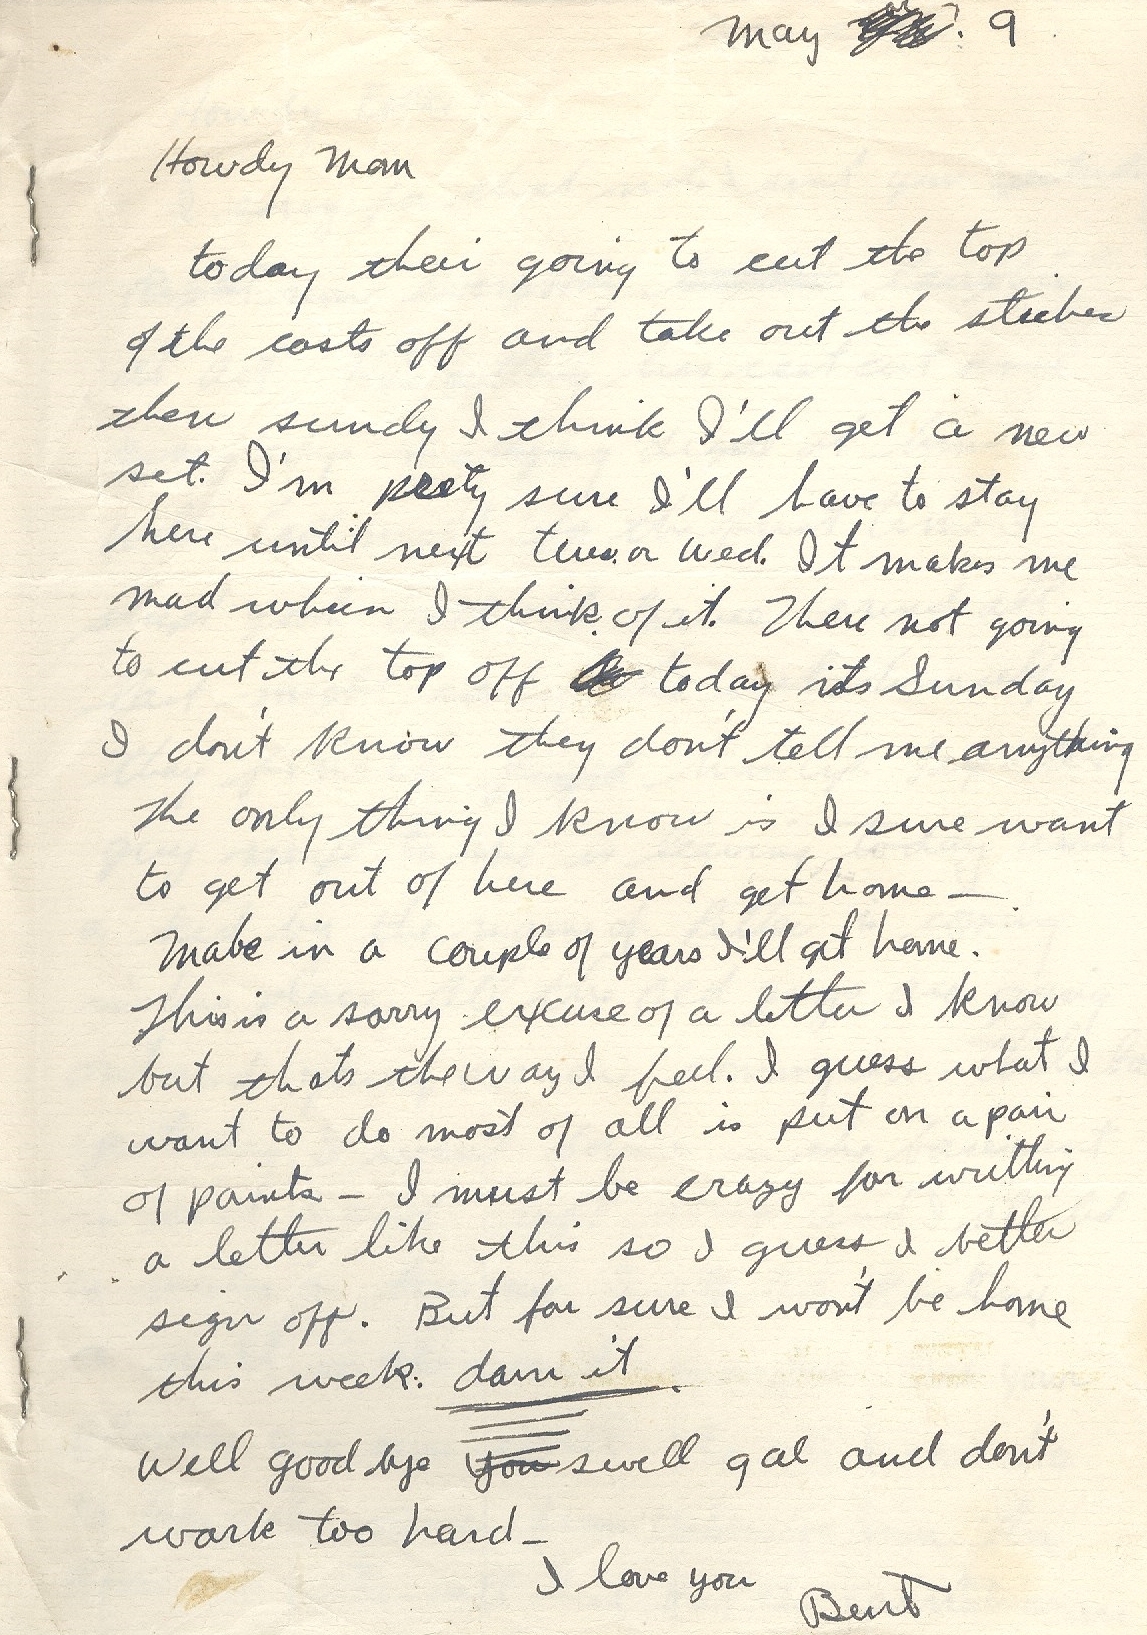 May 9
Howdy Mom
today their going to cut the top
of the casts off and take out the stiches
then sundy I think I'll get a new
set. I'm preety sure I'll have to stay
here until next tues. or Wed. It makes me
mad whein I think of it. There not going
to cut the top off today its Sunday
I don't know they don't tell me anything
the only thing I know is I sure want
to get out of here and get home —
Mabe in a couple of years I'll get home.
This is a sorry excuse of a letter I know
but thats the way I feel. I guess what I
want to do most of all is put on a pair
of paints — I must be crazy for writting
a letter like this so I guess I better
sign off. But for sure I won't be home
this week. dam it.
Well good bye you swell gal and don't
work too hard —
I love you
Bent